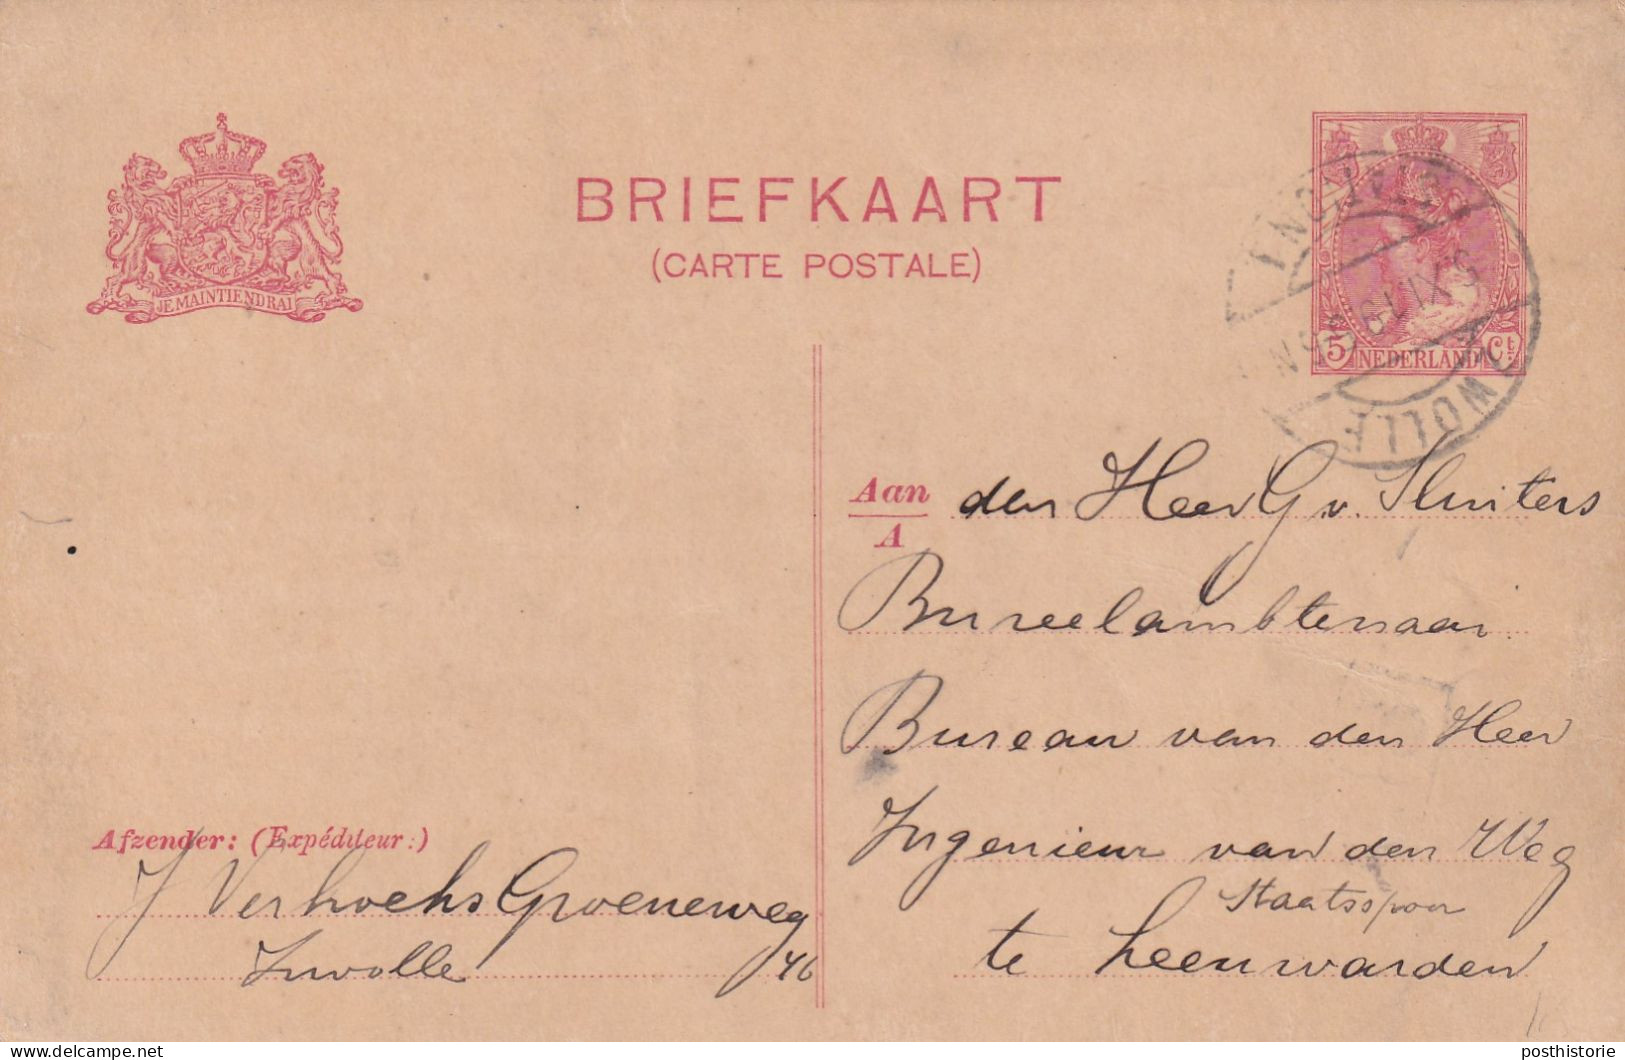 JE MAINTIENDRAI
BRIEFKAART
(CARTE POSTALE)
5 NEDERLAND Ct.
5.XI.19
Aan
A
den Heer G v. Sluiters
Bureelambtenaar
Bureau van den Heer
Ingenieur van den Weg
Staatsspoor
te Leeuwarden
Afzender: (Expéditeur:)
J Verhoeks Groeneweg
Zwolle 46
posthistorie